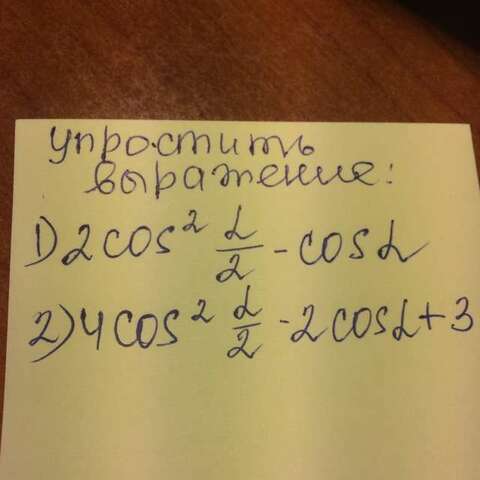 упростить
выражение:
1) 2cos² α/2 - cosα
2) 4cos² α/2 - 2cosα + 3